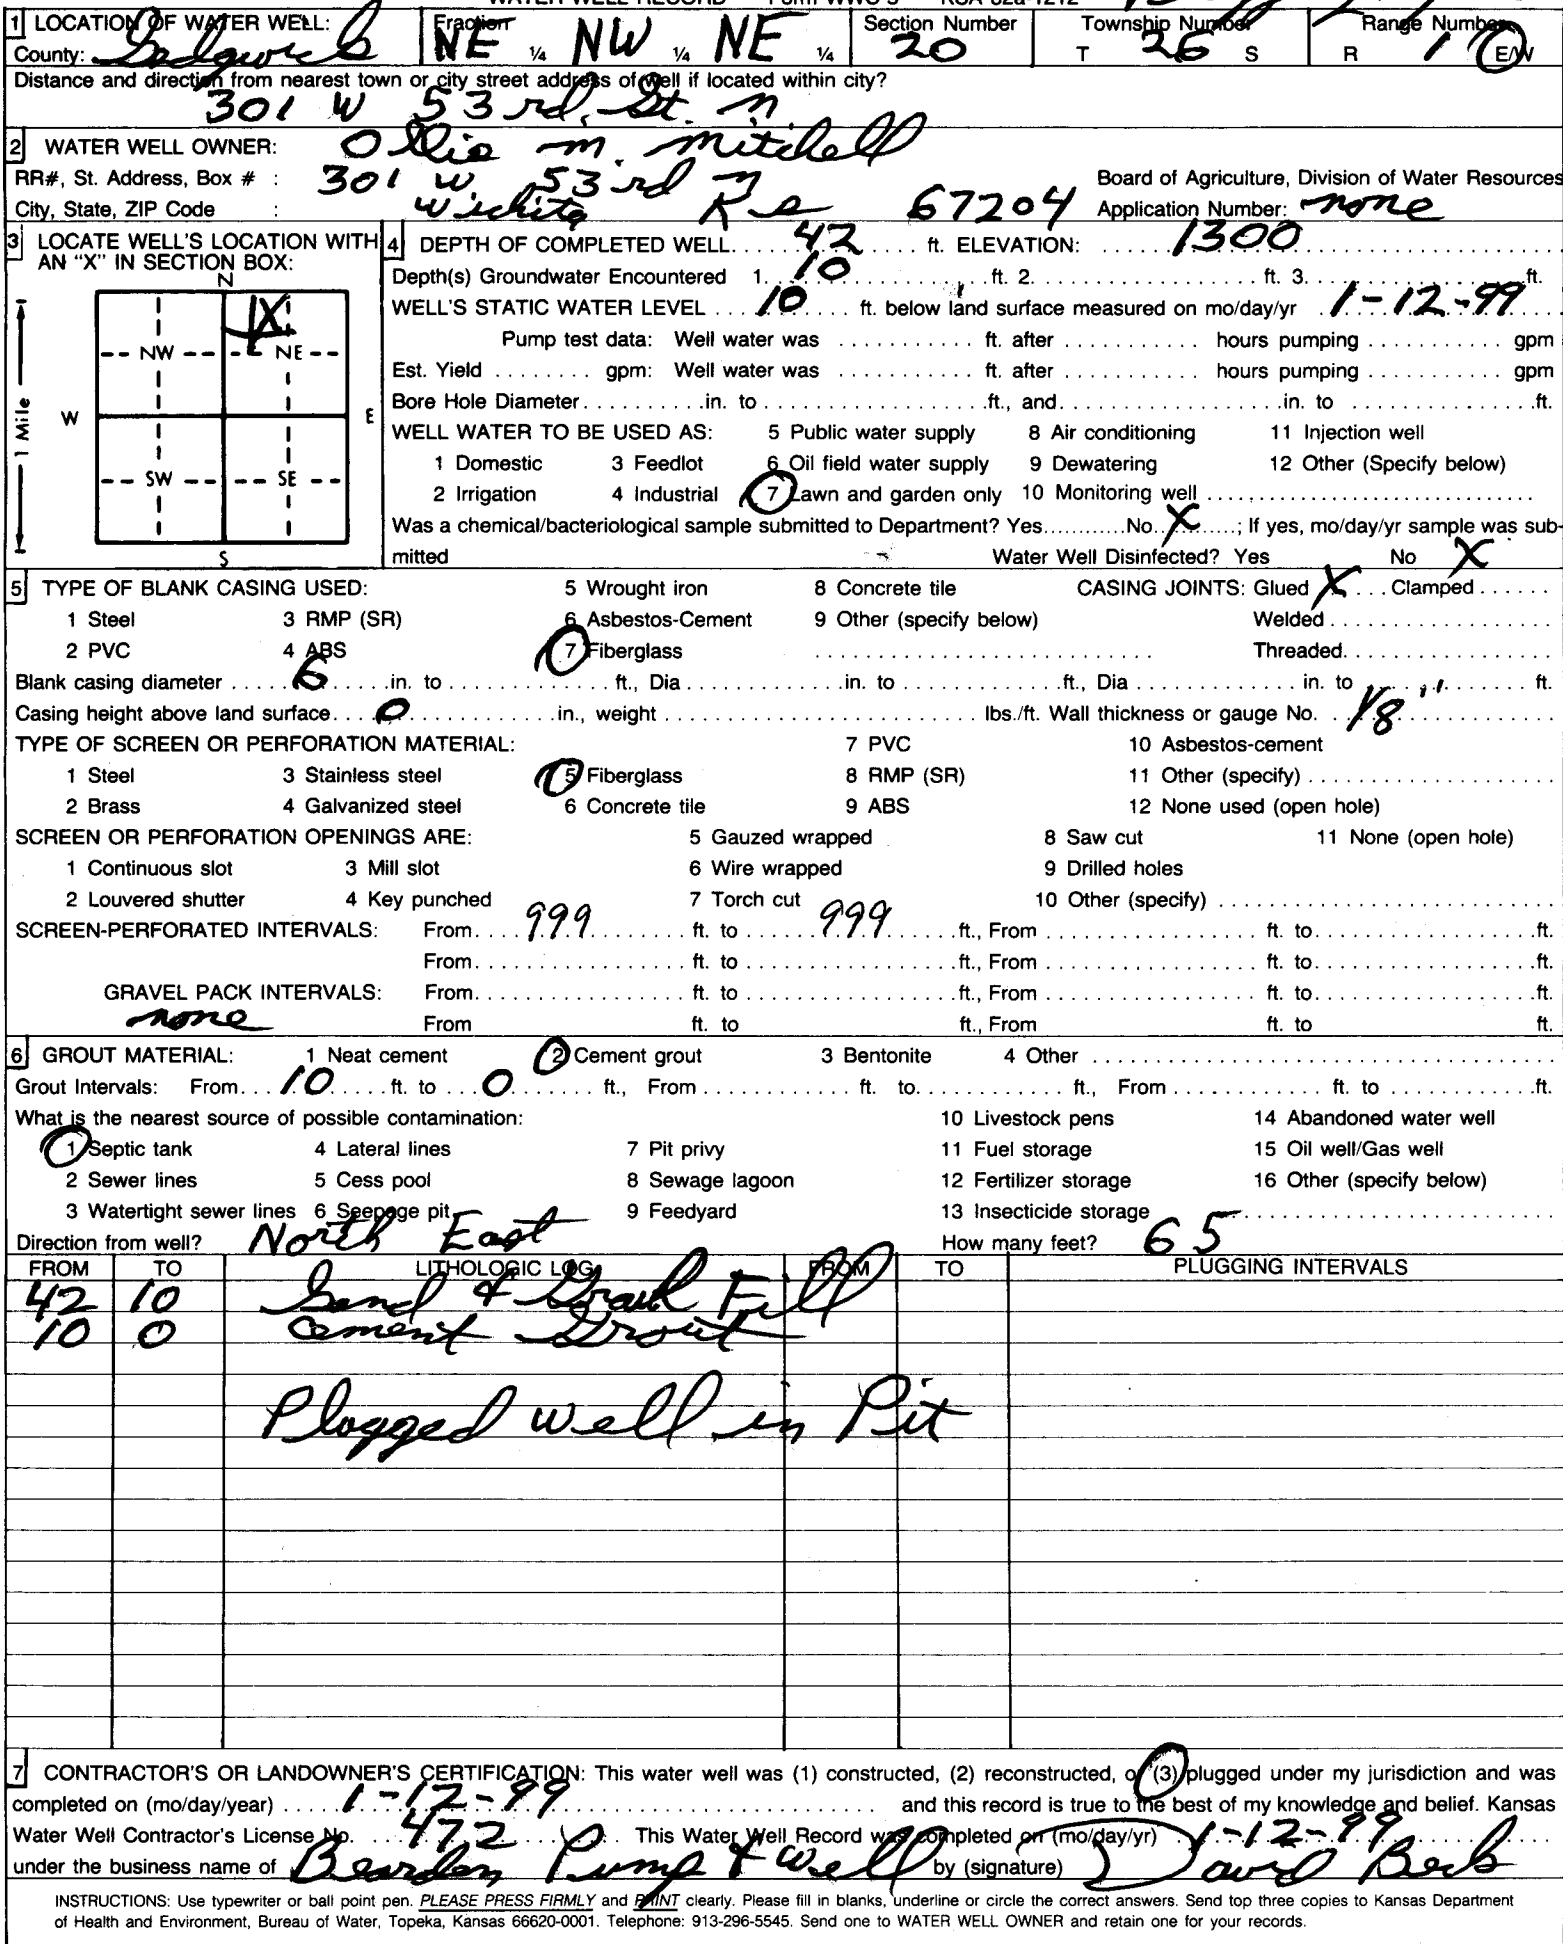 WATER WELL RECORD Form WWC-5 KSA 82a-1212
1 LOCATION OF WATER WELL: Fraction Section Number Township Number Range Number
County: Sedgwick NE ¼ NW ¼ NE ¼ 20 T 26 S R 1 E/W
Distance and direction from nearest town or city street address of well if located within city?
301 W 53rd. St. n
2 WATER WELL OWNER: Ollie m. mitchell
RR#, St. Address, Box # : 301 w 53rd n Board of Agriculture, Division of Water Resources
City, State, ZIP Code : Wichita Ks 67204 Application Number: none
3 LOCATE WELL'S LOCATION WITH AN "X" IN SECTION BOX:
N
X
NW NE
W E
SW SE
S
1 Mile
4 DEPTH OF COMPLETED WELL. 42 ft. ELEVATION: 1300
Depth(s) Groundwater Encountered 1. 10 ft. 2. ft. 3. ft.
WELL'S STATIC WATER LEVEL 10 ft. below land surface measured on mo/day/yr 1-12-99
Pump test data: Well water was ft. after hours pumping gpm
Est. Yield gpm: Well water was ft. after hours pumping gpm
Bore Hole Diameter in. to ft., and in. to ft.
WELL WATER TO BE USED AS: 5 Public water supply 8 Air conditioning 11 Injection well
1 Domestic 3 Feedlot 6 Oil field water supply 9 Dewatering 12 Other (Specify below)
2 Irrigation 4 Industrial 7 Lawn and garden only 10 Monitoring well
Was a chemical/bacteriological sample submitted to Department? Yes No X ; If yes, mo/day/yr sample was sub-
mitted Water Well Disinfected? Yes No X
5 TYPE OF BLANK CASING USED: 5 Wrought iron 8 Concrete tile CASING JOINTS: Glued X Clamped
1 Steel 3 RMP (SR) 6 Asbestos-Cement 9 Other (specify below) Welded
2 PVC 4 ABS 7 Fiberglass Threaded
Blank casing diameter 6 in. to ft., Dia in. to ft., Dia in. to ft.
Casing height above land surface 0 in., weight lbs./ft. Wall thickness or gauge No. 1/8"
TYPE OF SCREEN OR PERFORATION MATERIAL: 7 PVC 10 Asbestos-cement
1 Steel 3 Stainless steel 5 Fiberglass 8 RMP (SR) 11 Other (specify)
2 Brass 4 Galvanized steel 6 Concrete tile 9 ABS 12 None used (open hole)
SCREEN OR PERFORATION OPENINGS ARE: 5 Gauzed wrapped 8 Saw cut 11 None (open hole)
1 Continuous slot 3 Mill slot 6 Wire wrapped 9 Drilled holes
2 Louvered shutter 4 Key punched 7 Torch cut 10 Other (specify)
SCREEN-PERFORATED INTERVALS: From 999 ft. to 999 ft., From ft. to ft.
From ft. to ft., From ft. to ft.
GRAVEL PACK INTERVALS: From ft. to ft., From ft. to ft.
none From ft. to ft., From ft. to ft.
6 GROUT MATERIAL: 1 Neat cement 2 Cement grout 3 Bentonite 4 Other
Grout Intervals: From 10 ft. to 0 ft., From ft. to ft., From ft. to ft.
What is the nearest source of possible contamination: 10 Livestock pens 14 Abandoned water well
1 Septic tank 4 Lateral lines 7 Pit privy 11 Fuel storage 15 Oil well/Gas well
2 Sewer lines 5 Cess pool 8 Sewage lagoon 12 Fertilizer storage 16 Other (specify below)
3 Watertight sewer lines 6 Seepage pit 9 Feedyard 13 Insecticide storage
Direction from well? North East How many feet? 65
FROM TO LITHOLOGIC LOG FROM TO PLUGGING INTERVALS
42 10 Sand & Gravel Fill
10 0 Cement Grout
Plugged well in Pit
7 CONTRACTOR'S OR LANDOWNER'S CERTIFICATION: This water well was (1) constructed, (2) reconstructed, or (3) plugged under my jurisdiction and was
completed on (mo/day/year) 1-12-99 and this record is true to the best of my knowledge and belief. Kansas
Water Well Contractor's License No. 472 This Water Well Record was completed on (mo/day/yr) 1-12-99
under the business name of Bearden Pump & well by (signature) David
INSTRUCTIONS: Use typewriter or ball point pen. PLEASE PRESS FIRMLY and PRINT clearly. Please fill in blanks, underline or circle the correct answers. Send top three copies to Kansas Department
of Health and Environment, Bureau of Water, Topeka, Kansas 66620-0001. Telephone: 913-296-5545. Send one to WATER WELL OWNER and retain one for your records.